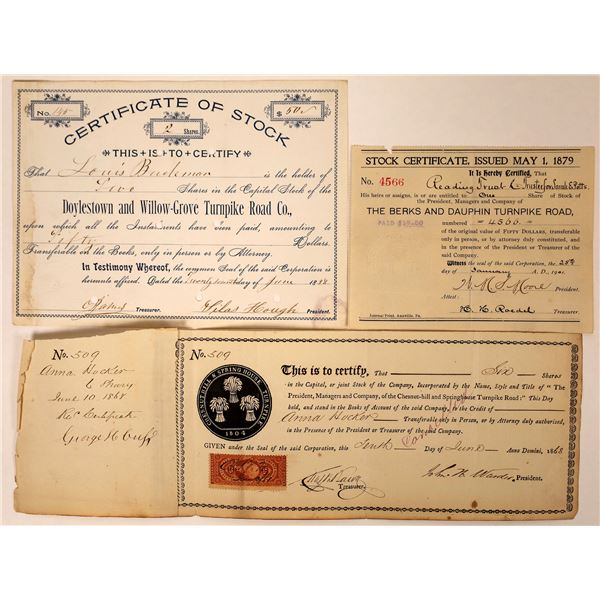 CERTIFICATE OF STOCK
No. 145
2
Shares
$ 50
THIS IS TO CERTIFY
That Louis Buckman is the holder of
Two Shares in the Capital Stock of the
Doylestown and Willow-Grove Turnpike Road Co.,
upon which all the Instalments have been paid, amounting to
Fifty Dollars.
Transferable on the Books, only in person or by Attorney.
In Testimony Whereof, the common Seal of the said Corporation is
hereunto affixed. Dated the day of June 1898
Treasurer. Silas Hough President.
STOCK CERTIFICATE, ISSUED MAY 1, 1879
It is Hereby Certified, That
No. 4566 Reading Trust Co Trustee for Sarah E. Potts.
His heirs or assigns, is or are entitled to One Share of Stock of
the President, Managers and Company of
THE BERKS AND DAUPHIN TURNPIKE ROAD,
PAID numbered 4566
of the original value of FIFTY DOLLARS, transferable
only in person, or by attorney duly constituted, and in
presence of the President or Treasurer of the said
Company.
Witness the seal of the said Corporation, the 28th
day of January A. D., 1901
Moore President.
Attest:
H. H. Roedel Treasurer.
Journal Print, Annville, Pa.
No. 509
Anna Hocker
6 Shares
June 10, 1868
Rec Certificate
No. 509
CHESNUT-HILL & SPRING HOUSE TURNPIKE
1804
This is to certify, That Six Shares
in the Capital, or joint Stock of the Company, Incorporated by the Name, Style and Title of "The
President, Managers and Company, of the Chesnut-hill and Springhouse Turnpike Road:" This Day
held, and stand in the Books of Account of the said Company, to the Credit of
Anna Hocker Transferable only in Person, or by Attorney duly authorised,
in the Presence of the President or Treasurer of the said Company.
GIVEN under the Seal of the said Corporation, this Tenth Day of June Anno Domini, 1868
Treasurer. John H. President.